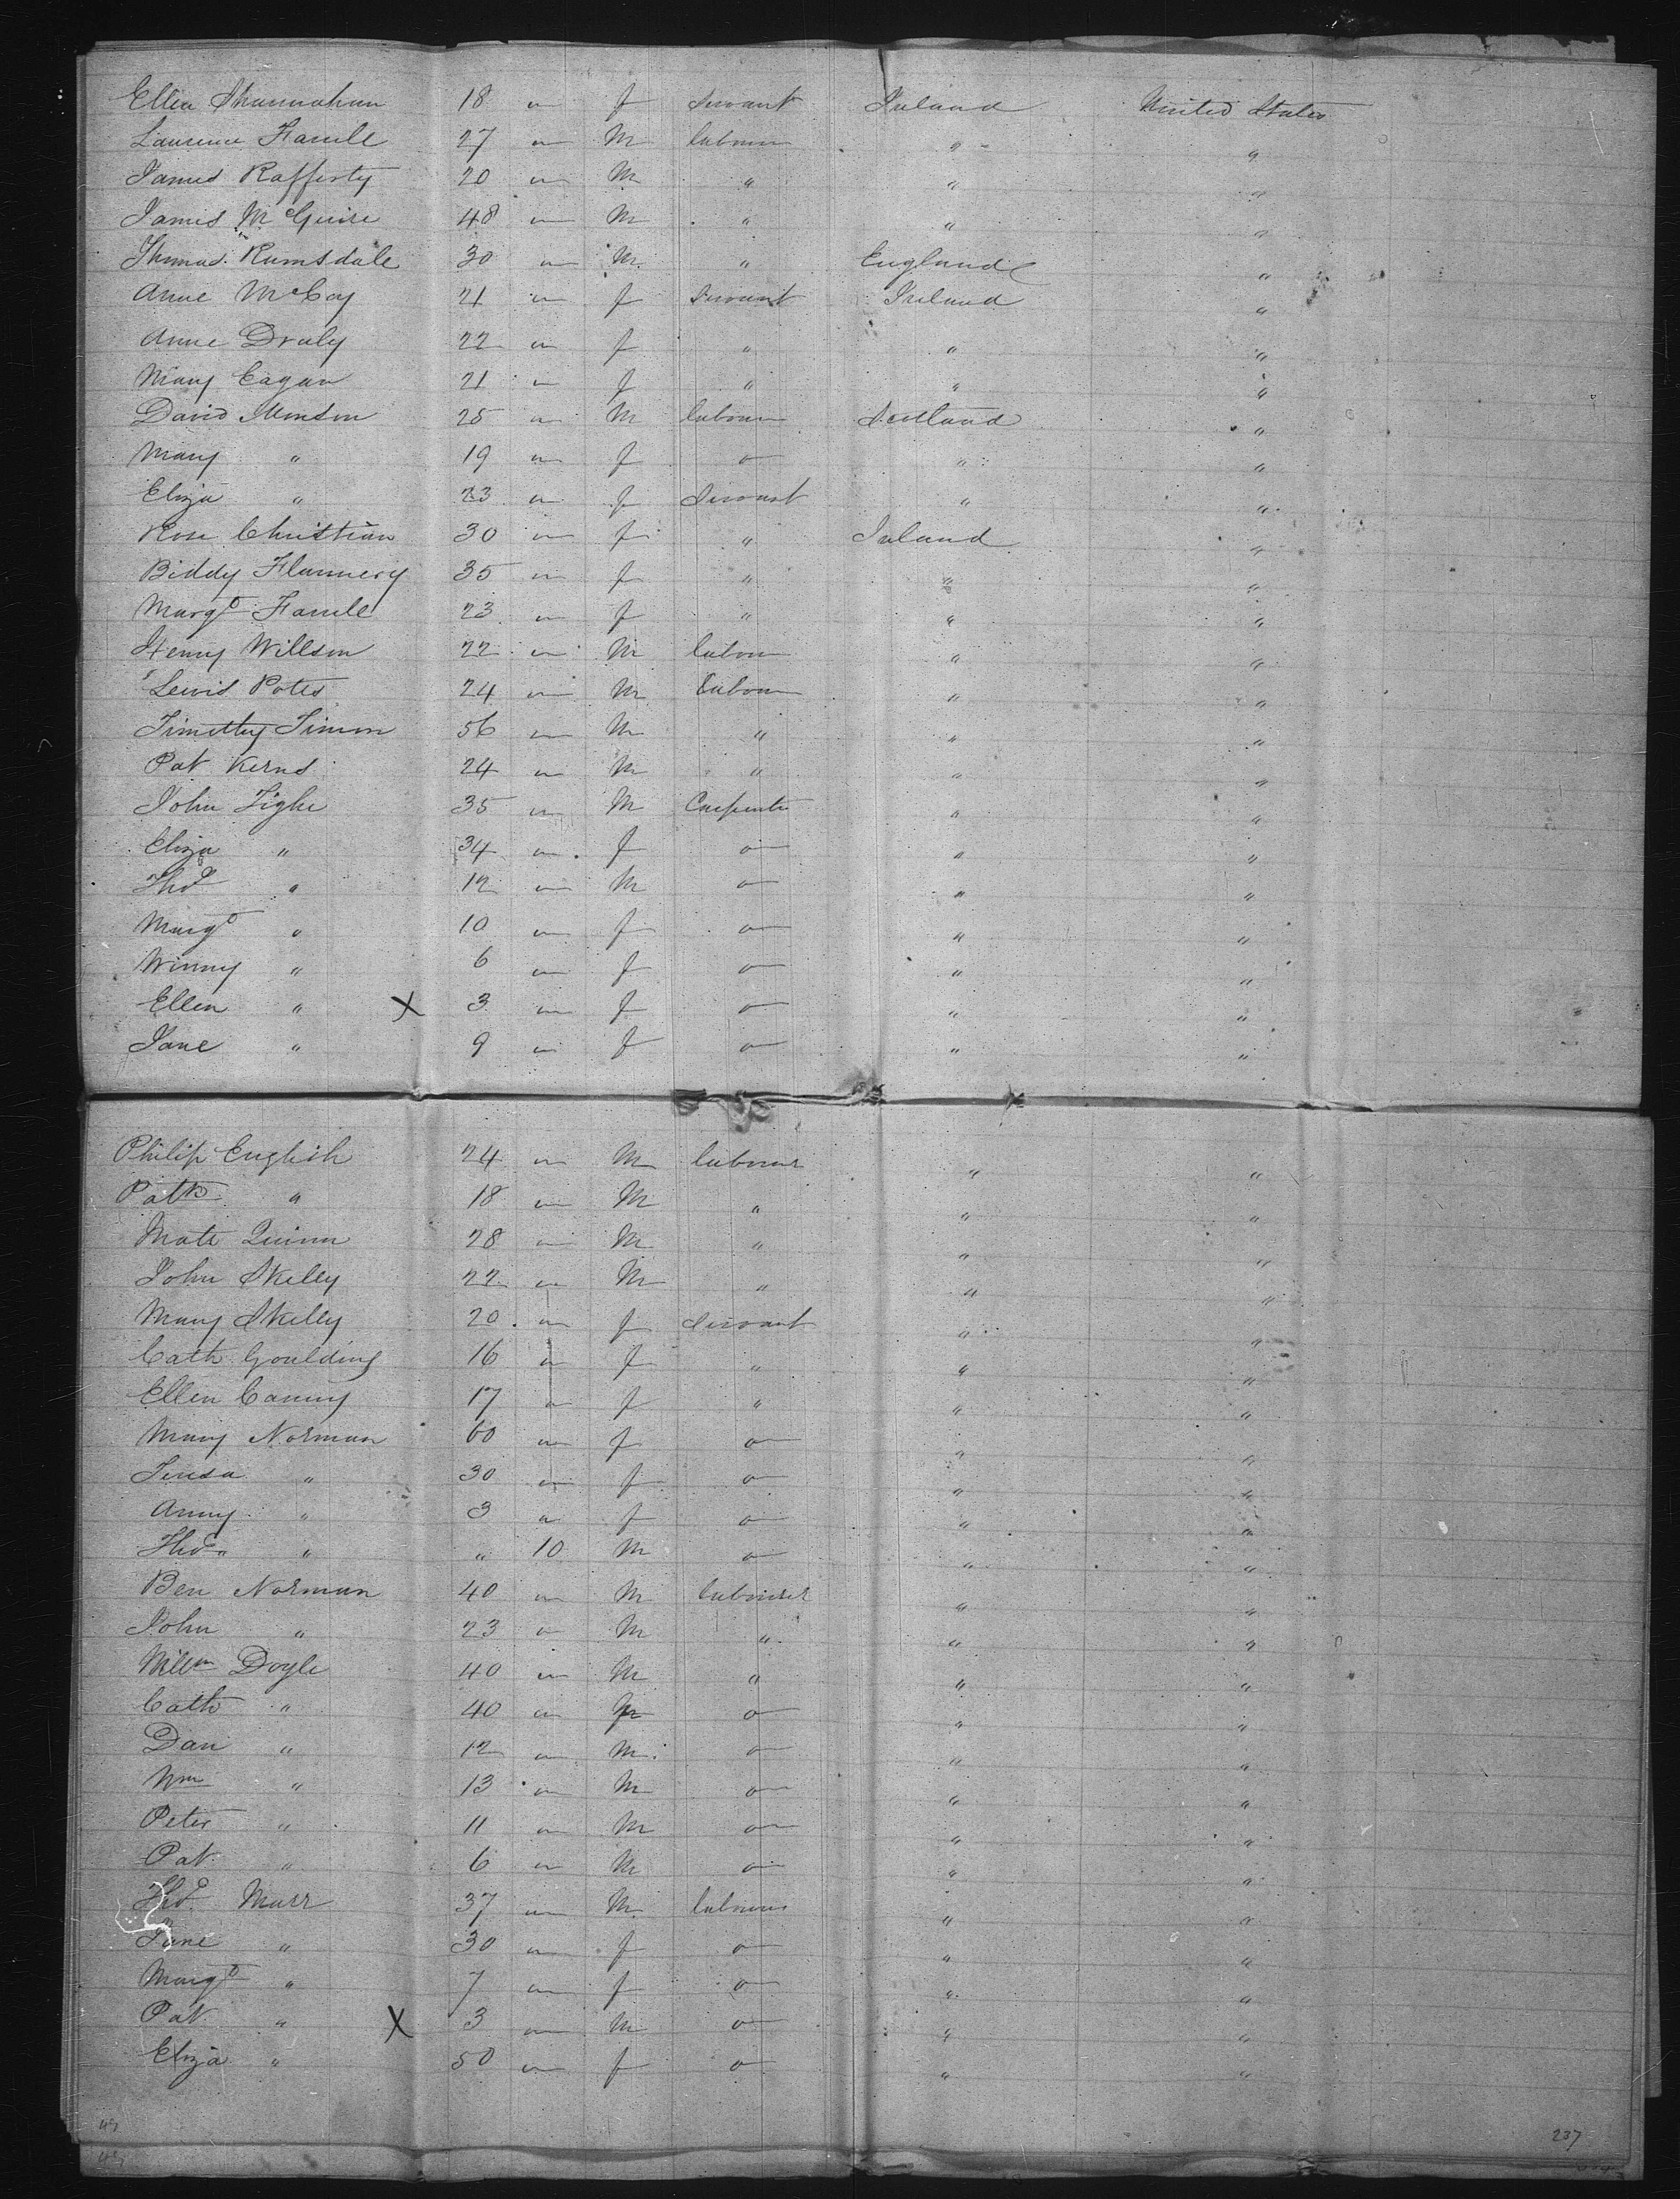 Ellen Shannahan 18 " f Servant Ireland United States
Laurence Farrell 27 " M labourer " "
James Rafferty 20 " M " " "
James McGuire 48 " M " " "
Thomas Rumsdale 30 " M " England "
Anne McCoy 21 " f Servant Ireland "
Anne Draly 22 " f " " "
Mary Eagan 21 " f " " "
David 25 " M labourer Scotland "
Mary " 19 " f o " "
Eliza " 23 " f Servant " "
Rose Christian 30 " f " Ireland "
Biddy Flannery 35 " f " " "
Margt Farrell 23 " f " " "
Henry Willson 22 " M labour " "
Lewis Potts 24 " M labour " "
Timothy Simon 56 " M " " "
Pat Kerns 24 " M " " "
John Tighe 35 " M Carpenter " "
Eliza " 34 " f o " "
Thos " 12 " M o " "
Margt " 10 " f o " "
Winny " 6 " f o " "
Ellen " X 3 " f o " "
Jane " 9 " f o " "
Philip English 24 " M labourer " "
Patk " 18 " M " " "
Mate Quinn 28 " M " " "
John Skelly 22 " M " " "
Mary Skelly 20 " f Servant " "
Cath Goulding 16 " f " " "
Ellen Canny 17 " f " " "
Mary Norman 60 " f o " "
Teresa " 30 " f o " "
Anny " 3 " f o " "
Thos " " 10 M o " "
Ben Norman 40 " M labourer " "
John " 23 " M " " "
Willm Doyle 40 " M " " "
Cath " 40 " f o " "
Dan " 12 " M o " "
Wm " 13 " M o " "
Peter " 11 " M o " "
Pat " 6 " M o " "
Thos Marr 37 " M labourer " "
Jane " 30 " f o " "
Margt " 7 " f o " "
Pat " X 3 " M o " "
Eliza " 50 " f o " "
49
237